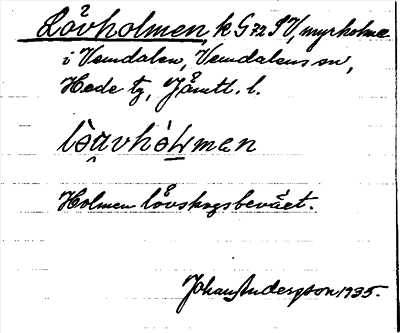 Lövholmen, k G72 SV, myrholme
i Vemdalen, Vemdalens sn,
Hede tg, Jämtl. l.
Holmen lövskogsbeväxt.
Johan Andersson 1935.